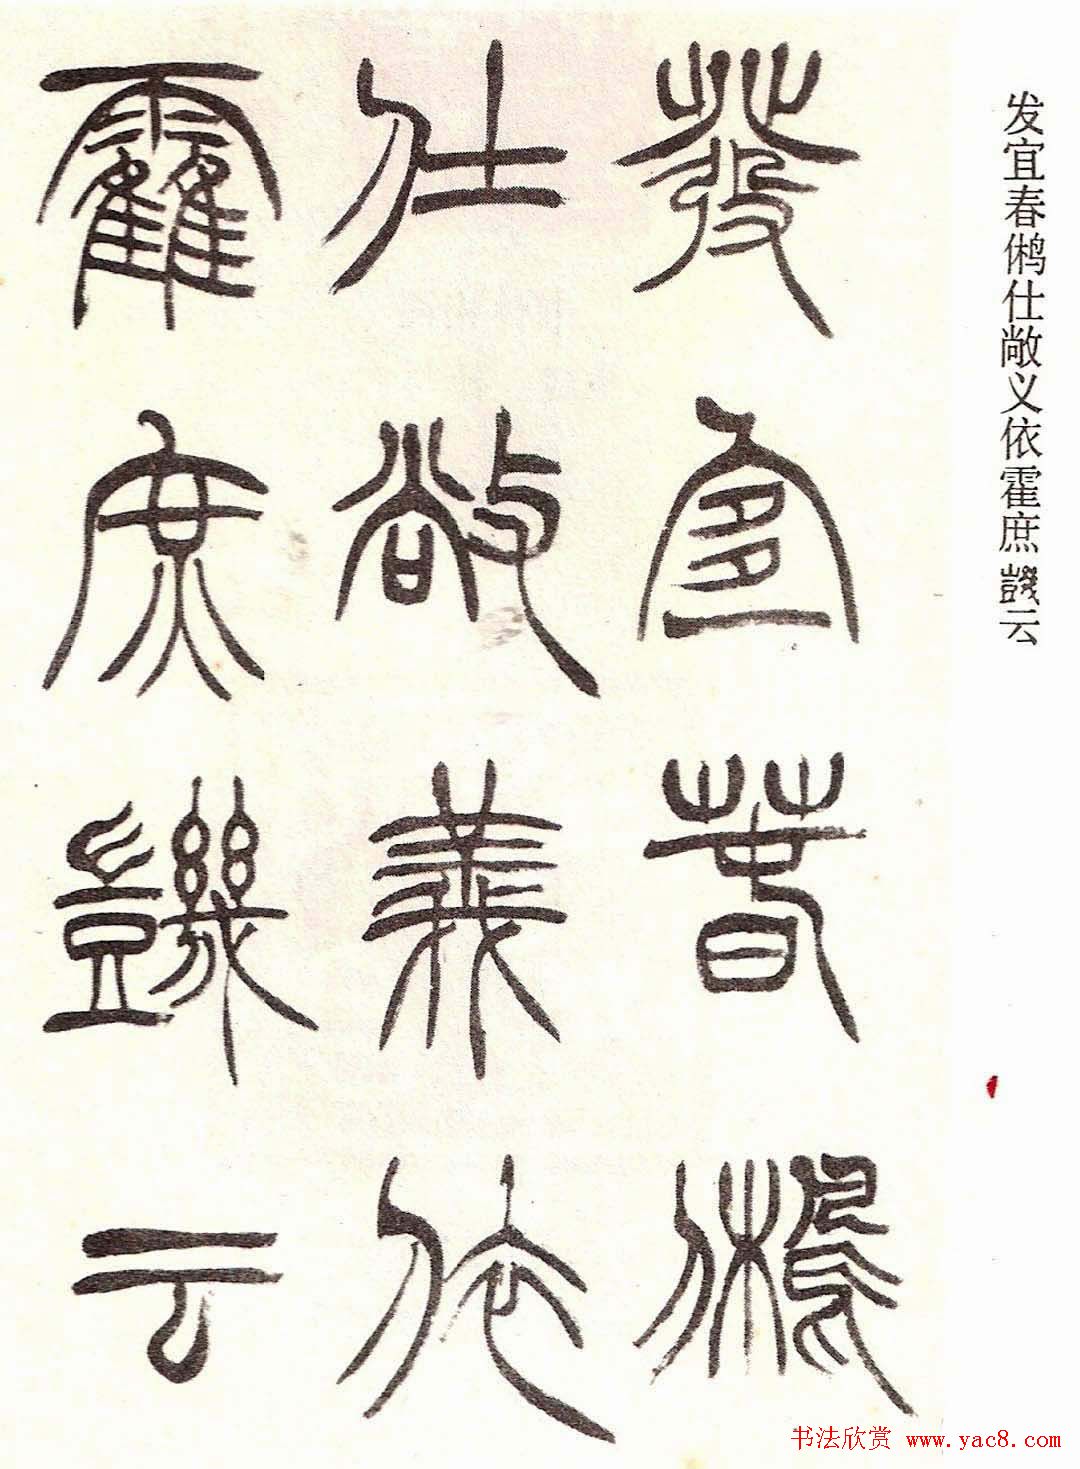 发宜春鸺仕敞义依霍庶云
發宜春鵂
仕敞義依
靃庶云
书法欣赏 www.yac8.com